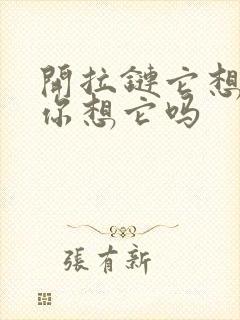 開拉鏈它想
你想它吗
張有新